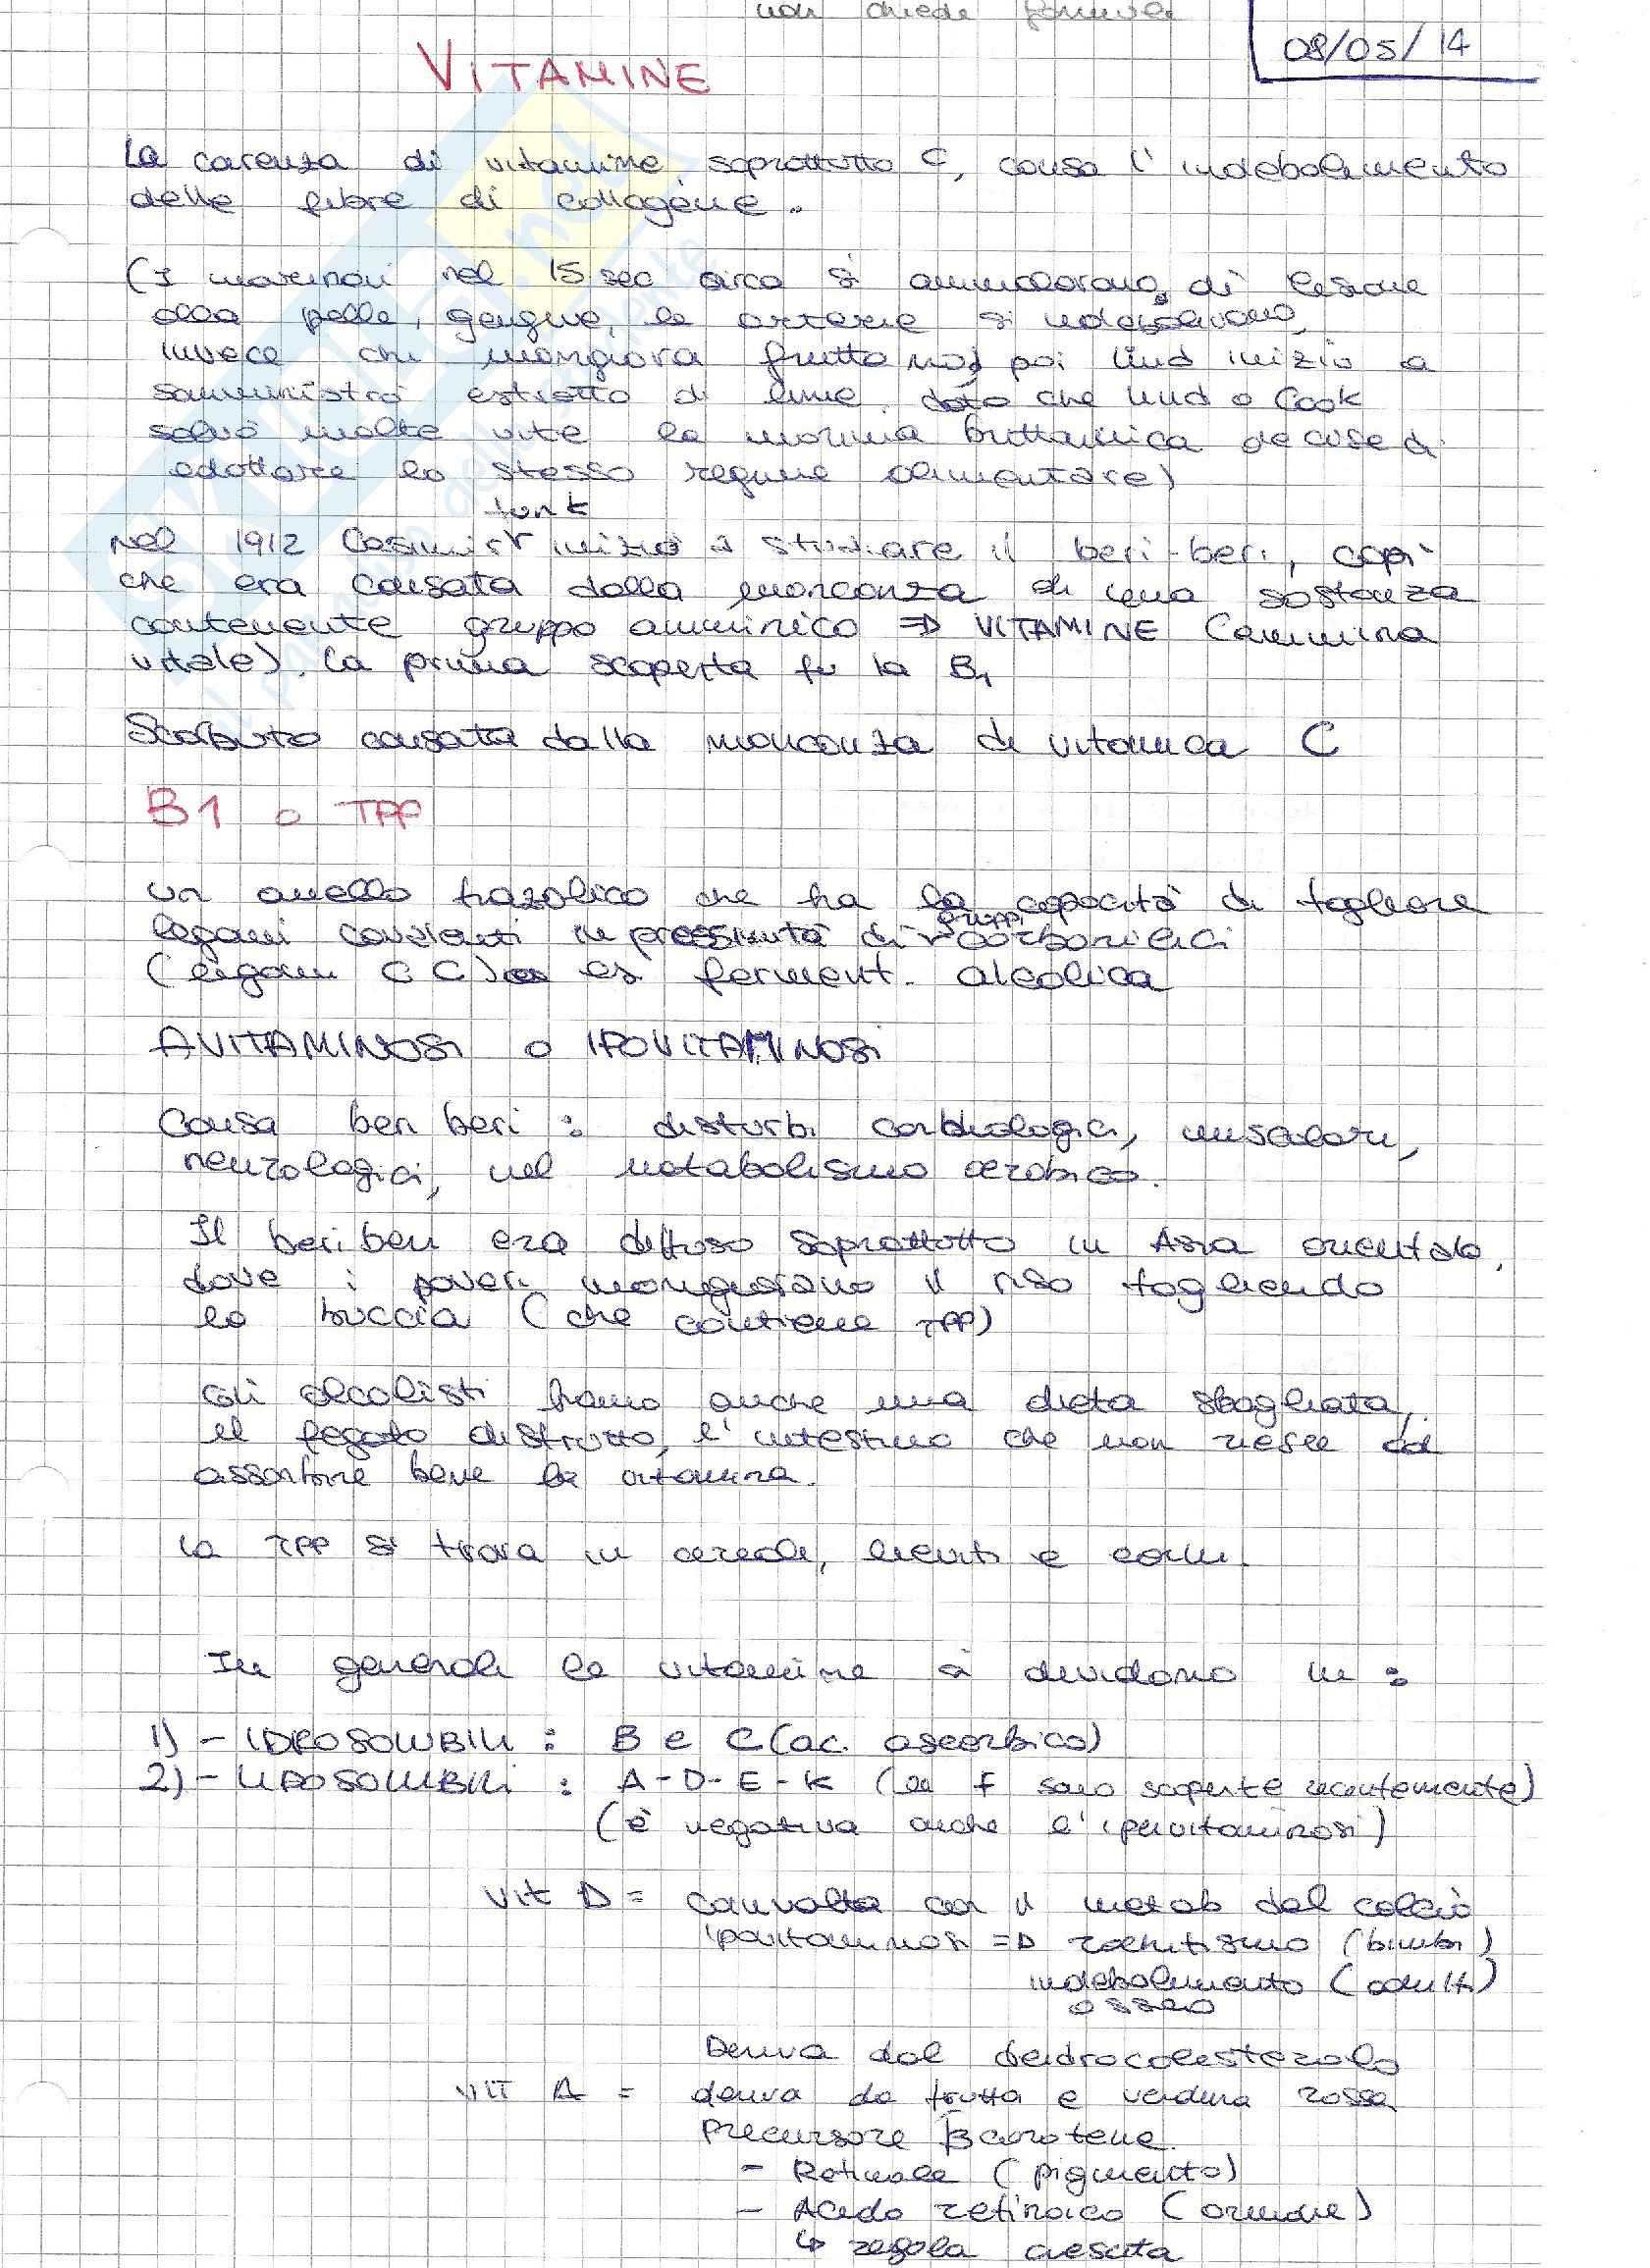 non chiede formule
08/05/14
VITAMINE
La carenza di vitamine, soprattutto C, causa l'indebolimento
delle fibre di collagene.
(I marinai nel 15 sec circa si ammalarono di lesione
alla pelle, gengive, le arterie si indebolivano,
invece chi mangiava frutta no) poi Lind iniziò a
somministrà estratto di lime. dato che Lind e Cook
salvò molte vite la marina brittannica decise di
adottare lo stesso regime alimentare)
funk
Nel 1912 Casimir iniziò a studiare il beri-beri, capì
che era causata dalla mancanza di una sostanza
contenente gruppo amminico => VITAMINE (ammina
vitale). La prima scoperta fu la B1
Scorbuto causata dalla mancanza di vitamina C
B1 o TPP
un anello tiazolico che ha la capacità di togliere
legami covalenti in prossimità di gruppi carbonilici
(legami C C) es ferment. alcolica
AVITAMINOSI o IPOVITAMINOSI
Causa beri beri : disturbi cardiologici, muscolari,
neurologici, nel metabolismo aerobico.
Il beri beri era diffuso soprattutto in Asia orientale,
dove i poveri mangiavano il riso togliendo
la buccia (che contiene TPP)
Gli alcolisti hanno anche una dieta sbagliata,
il fegato distrutto, l'intestino che non riesce ad
assorbire bene la vitamina.
La TPP si trova in cereali, lieviti e carni.
In generale le vitamine si dividono in :
1) - IDROSOLUBILI : B e C (ac. ascorbico)
2) - LIPOSOLUBILI : A-D-E-K (la F sono scoperte recentemente)
(è negativa anche l'ipervitaminosi)
Vit D = coinvolta con il metab del calcio
ipovitaminosi => rachitismo (bimbi)
indebolimento (adulti)
osseo
Deriva dal deidrocolesterolo
VIT A = deriva da frutta e verdura rossa
Precursore βcarotene
- Retinale (pigmento)
- Acido retinoico (ormone)
↳ regola crescita